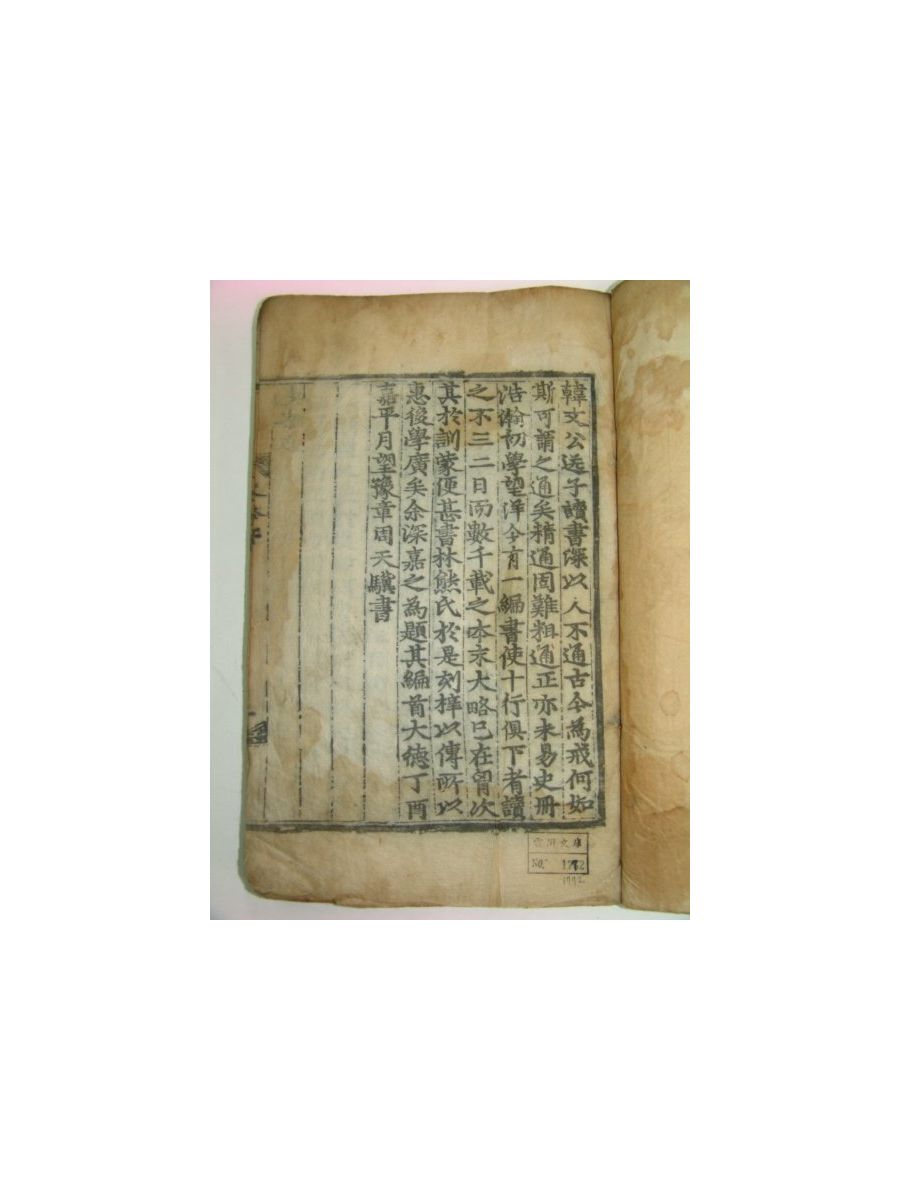 韓文公送子讀書深以人不通古今為戒何如
斯可謂之通矣精通固難粗通正亦未易史冊
浩瀚初學望洋今有一編書使十行俱下者讀
之不三二日而數千載之本末大略已在胷次
其於訓蒙便甚書林熊氏於是刻梓以傳所以
惠後學廣矣余深嘉之為題其編首大德丁酉
嘉平月望豫章周天驥書
文庫
NO. 1772
1772